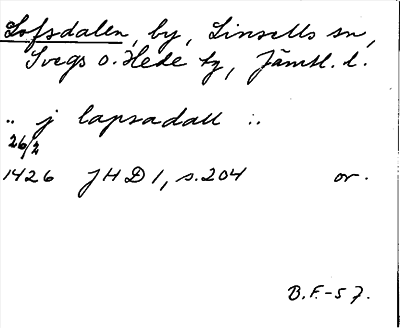 Lofsdalen, by, Linsells sn,
Svegs o. Hede tg, Jämtl. l.
.. j lapsadall :.
26/2
1426 JHD 1, s. 204 or.
B.F.-57.